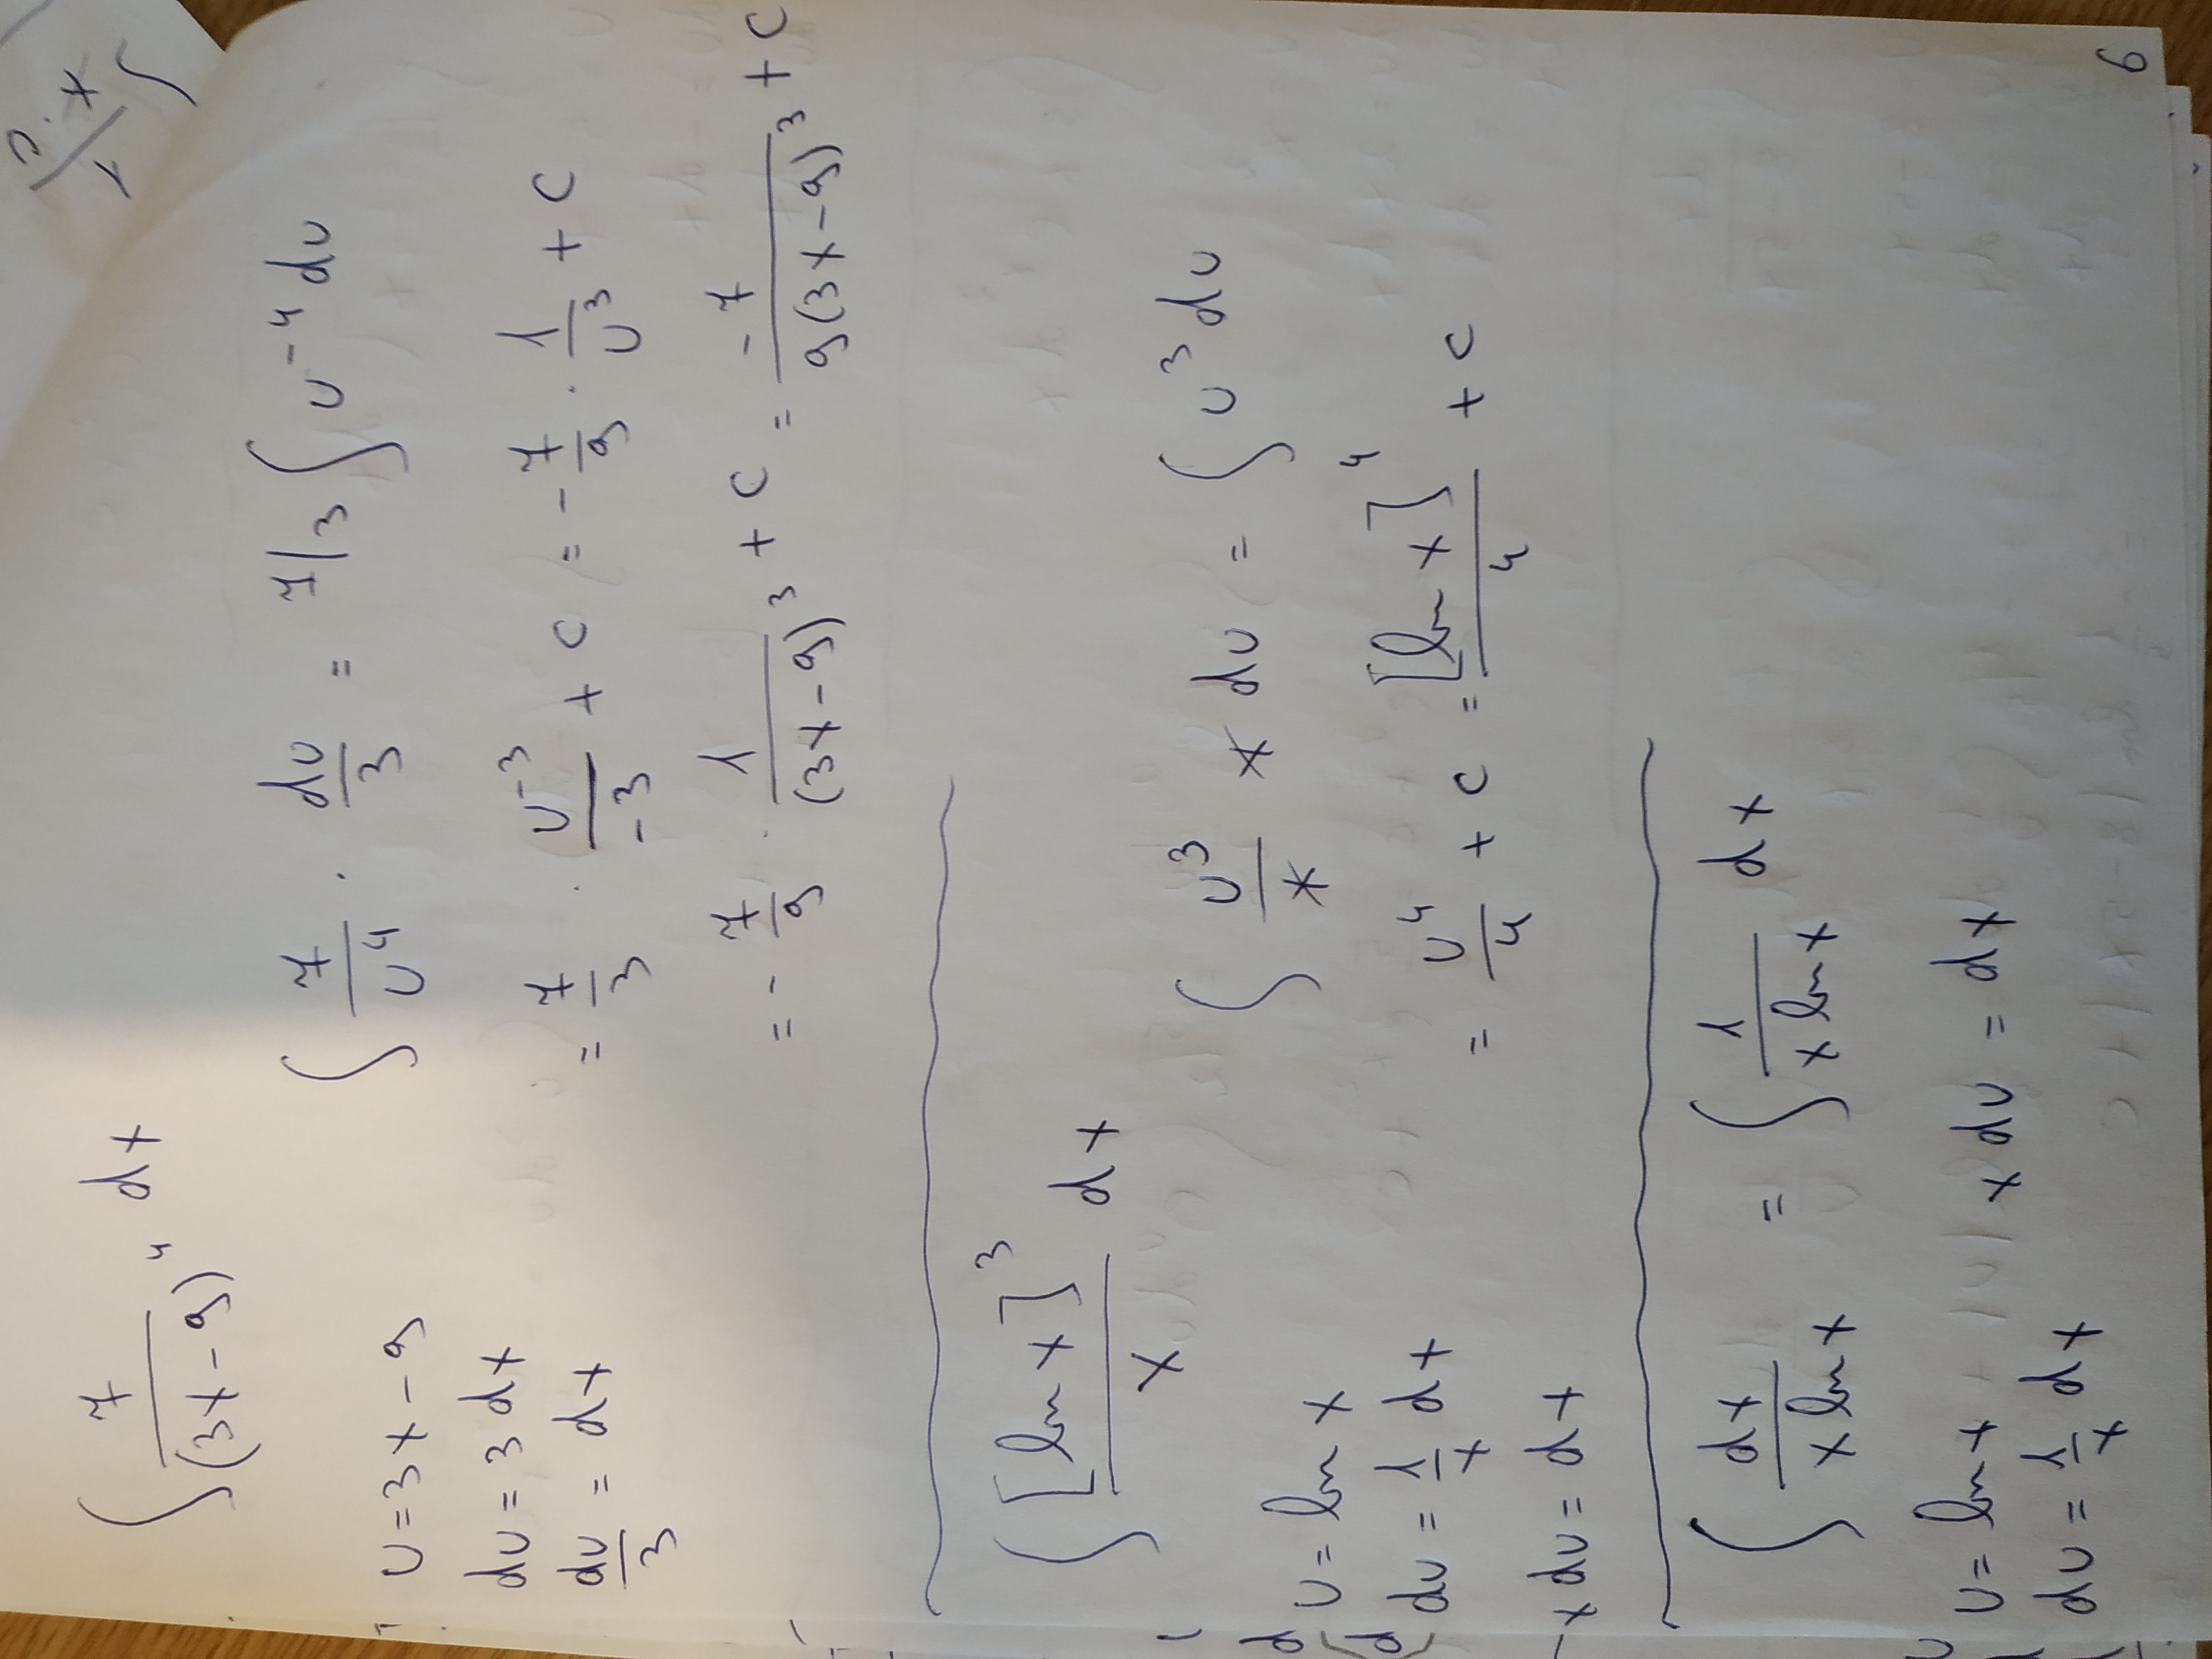 ∫ 7/(3x-9)^4 dx
u = 3x - 9
du = 3 dx
du/3 = dx
∫ 7/u^4 · du/3 = 7/3 ∫ u^-4 du
= 7/3 · u^-3/-3 + C = - 7/9 · 1/u^3 + C
= - 7/9 · 1/(3x-9)^3 + C = -7/9(3x-9)^3 + C
∫ [ln x]^3/x dx
u = ln x
du = 1/x dx
x du = dx
∫ u^3/x x du = ∫ u^3 du
= u^4/4 + C = [ln x]^4/4 + C
∫ dx/x ln x = ∫ 1/x ln x dx
u = ln x x du = dx
du = 1/x dx
6